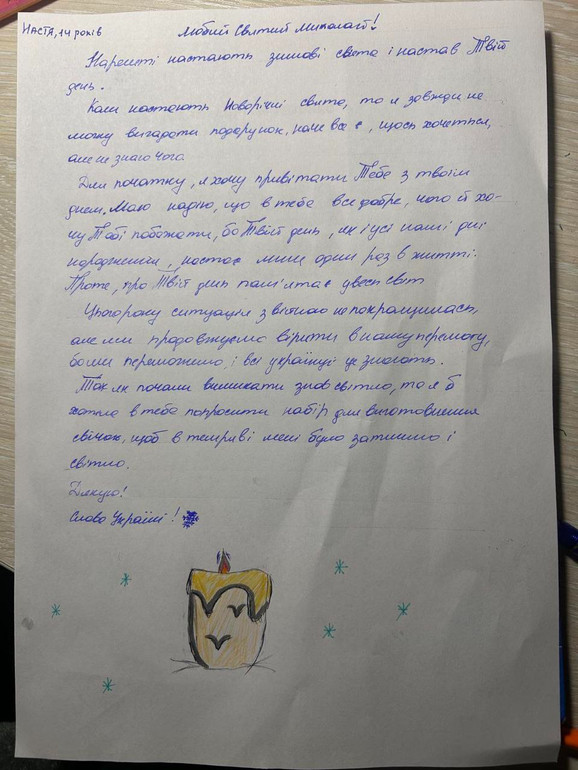 НАСТА, 14 років
Любий Святий Миколаї!
Нарешті настають зимові свята і настав Твій
день.
Коли настають Новорічні свята, то я завжди не
можу вигадати подарунок, наче все є, щось хочеться,
але не знаю чого
Для початку, я хочу привітати Тебе з твоїм
днем. Маю надію, що в тебе все добре, чого й хо-
чу Тобі побажати, бо Твій день, як і усі наші дні
народження, настає лише один раз в житті.
Проте, про Твій день пам'ятає увесь світ
Цьогоріч ситуація з війною не покращилась,
але ми продовжуємо вірити в нашу перемогу,
бо ми переможемо, і всі українці це знають.
Так як почали вимикати знов світло, то я б
хотіла в тебе попросити набір для виготовлення
свічок, щоб в темряві мені було затишно і
світло.
Дякую!
Слава Україні!